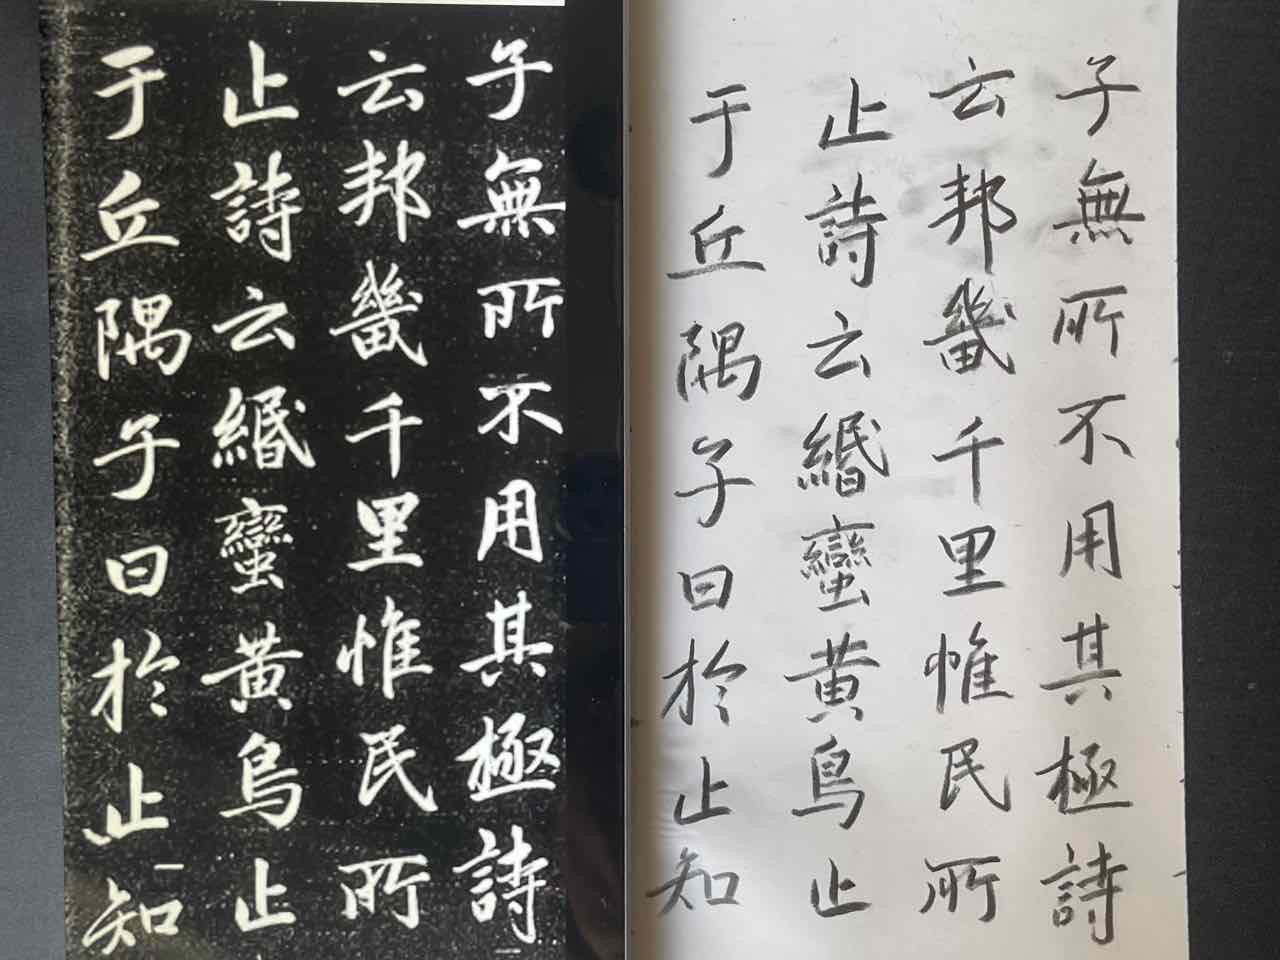 子無所不用其極詩
云邦畿千里惟民所
止詩云緡蠻黄鳥止
于丘隅子曰於止知
子無所不用其極詩
云邦畿千里惟民所
止詩云緡蠻黄鳥止
于丘隅子曰於止知